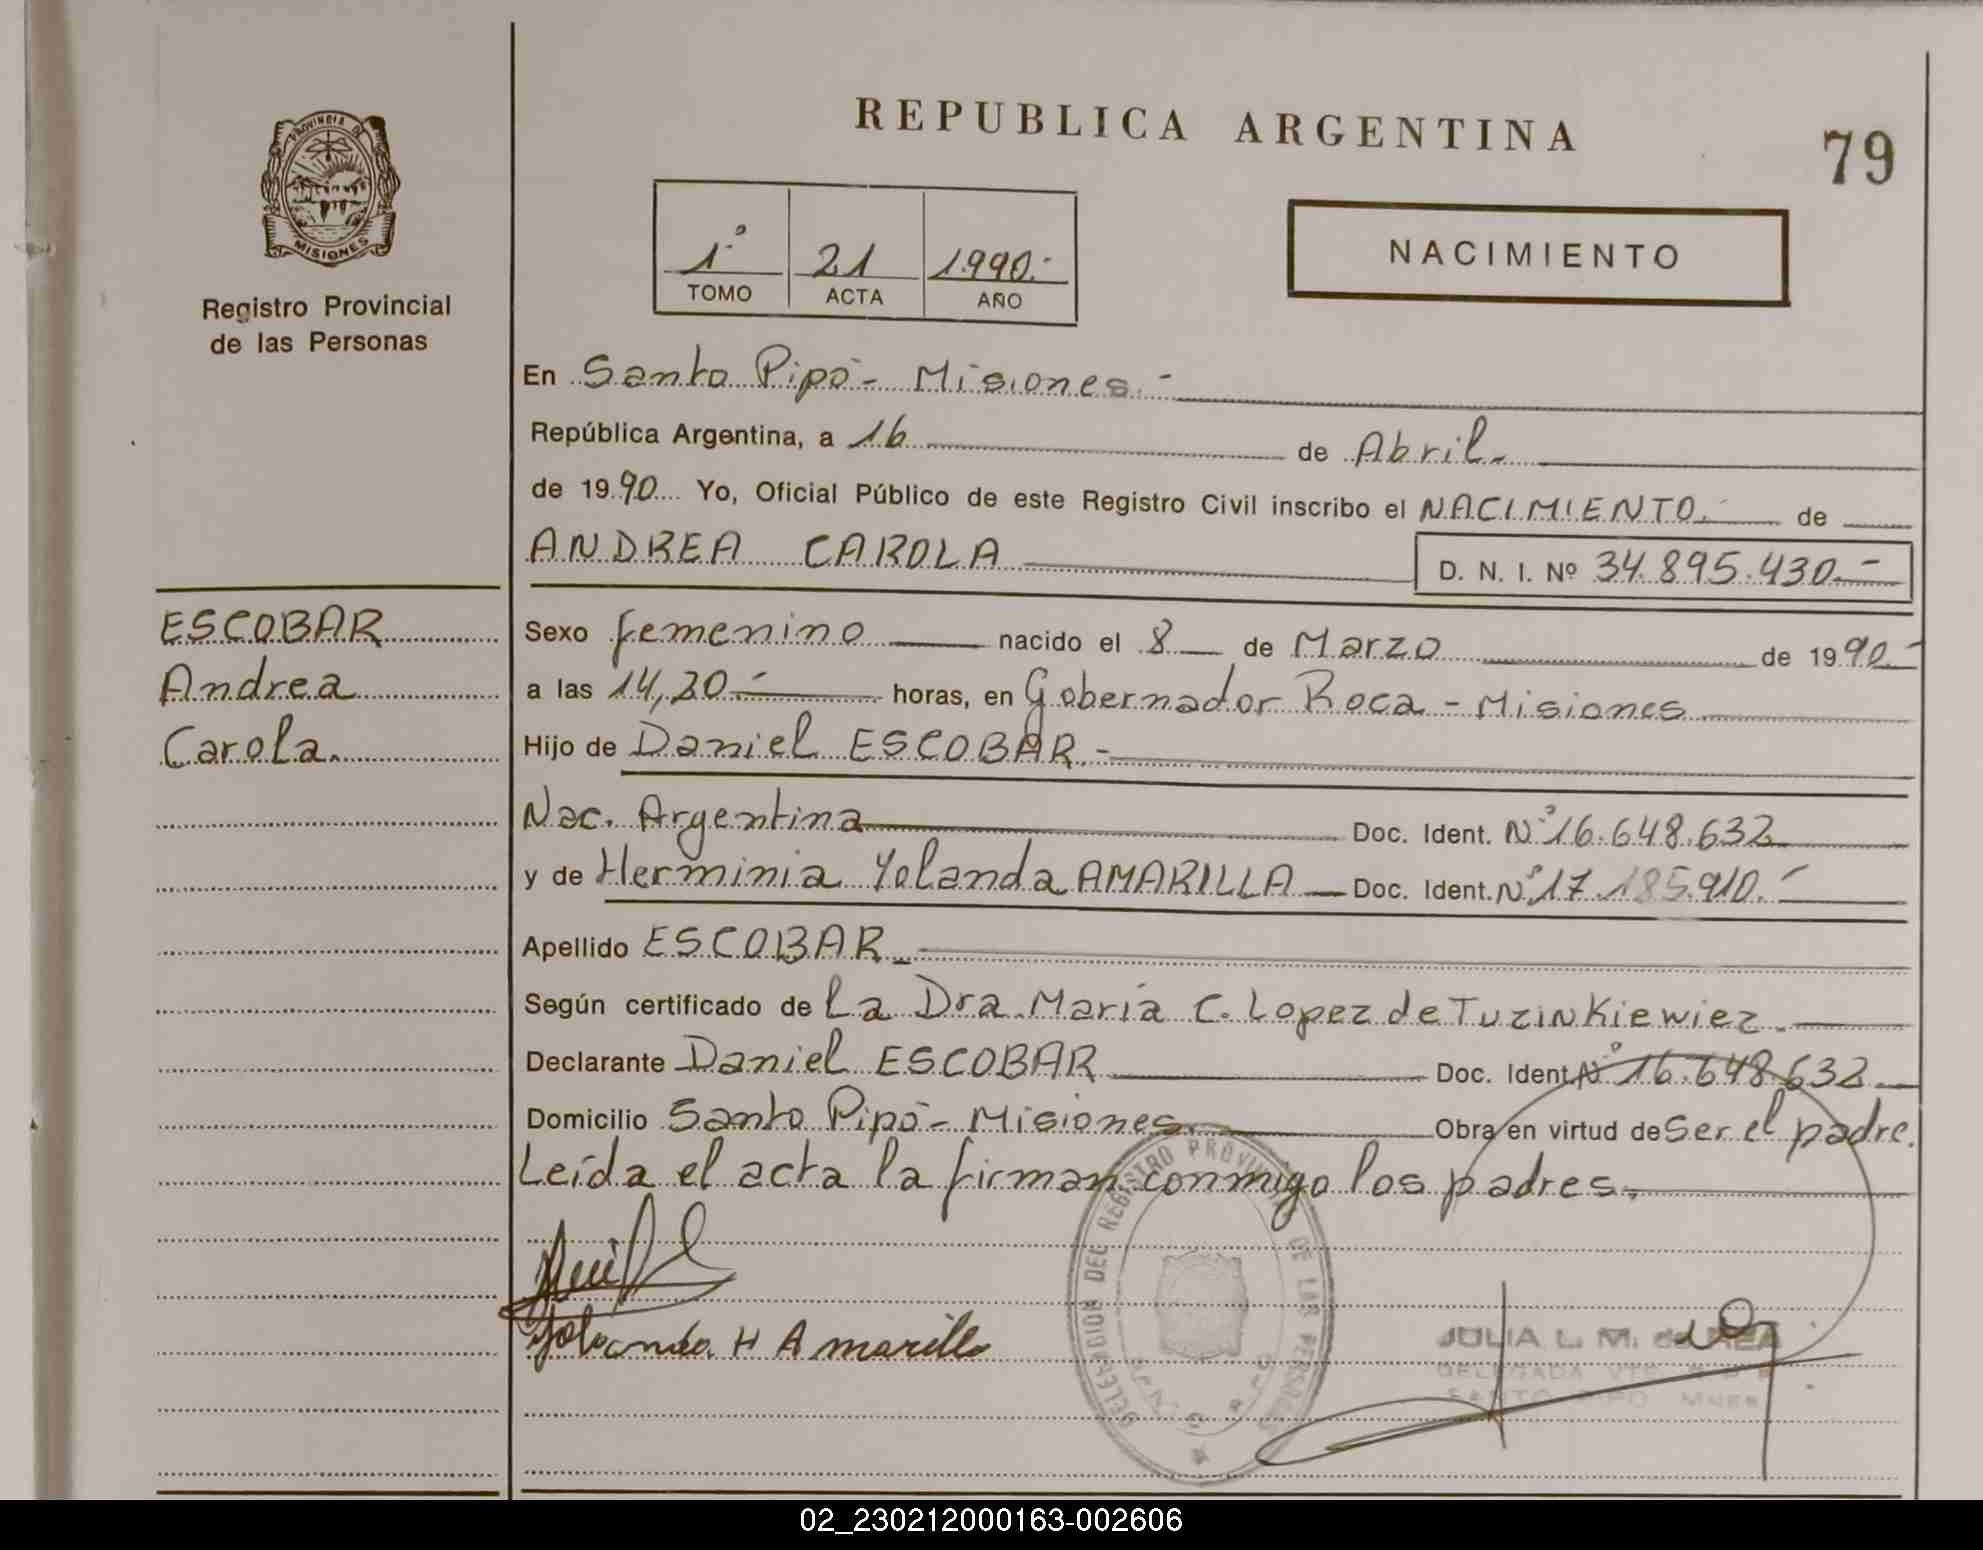 REPUBLICA ARGENTINA
79
PROVINCIA DE
MISIONES
Registro Provincial
de las Personas
1º 21 1990.-
TOMO ACTA AÑO
NACIMIENTO
En Santo Pipó - Misiones.-
República Argentina, a 16 de Abril.
de 1990 Yo, Oficial Público de este Registro Civil inscribo el NACIMIENTO. de
ANDREA CAROLA D. N. I. Nº 34.895.430.-
ESCOBAR
Andrea
Carola.
Sexo femenino nacido el 8 de Marzo de 1990.-
a las 14,20.- horas, en Gobernador Roca - Misiones
Hijo de Daniel ESCOBAR.-
Nac. Argentina Doc. Ident. Nº 16.648.632
y de Herminia Yolanda AMARILLA Doc. Ident. Nº 17.185.910.-
Apellido ESCOBAR
Según certificado de La Dra. María C. Lopez de Tuzinkiewiez.
Declarante Daniel ESCOBAR Doc. Ident. Nº 16.648.632
Domicilio Santo Pipó - Misiones. Obra en virtud de ser el padre.
Leída el acta la firman conmigo los padres.
Yolanda H Amarilla
DELEGACION DEL REGISTRO PROVINCIAL DE LAS PERSONAS
JULIA L. M. de
DELEGADA
SANTO PIPO MNES
02_230212000163-002606